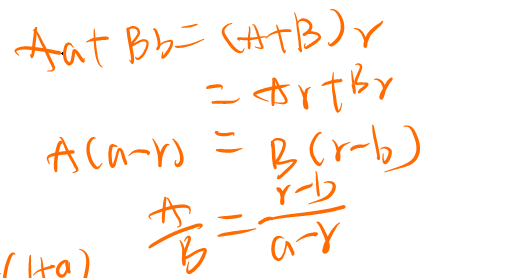 Aa+Bb=(A+B)r
=Ar+Br
A(a-r)=B(r-b)
A/B=(r-b)/(a-r)
(1+a)